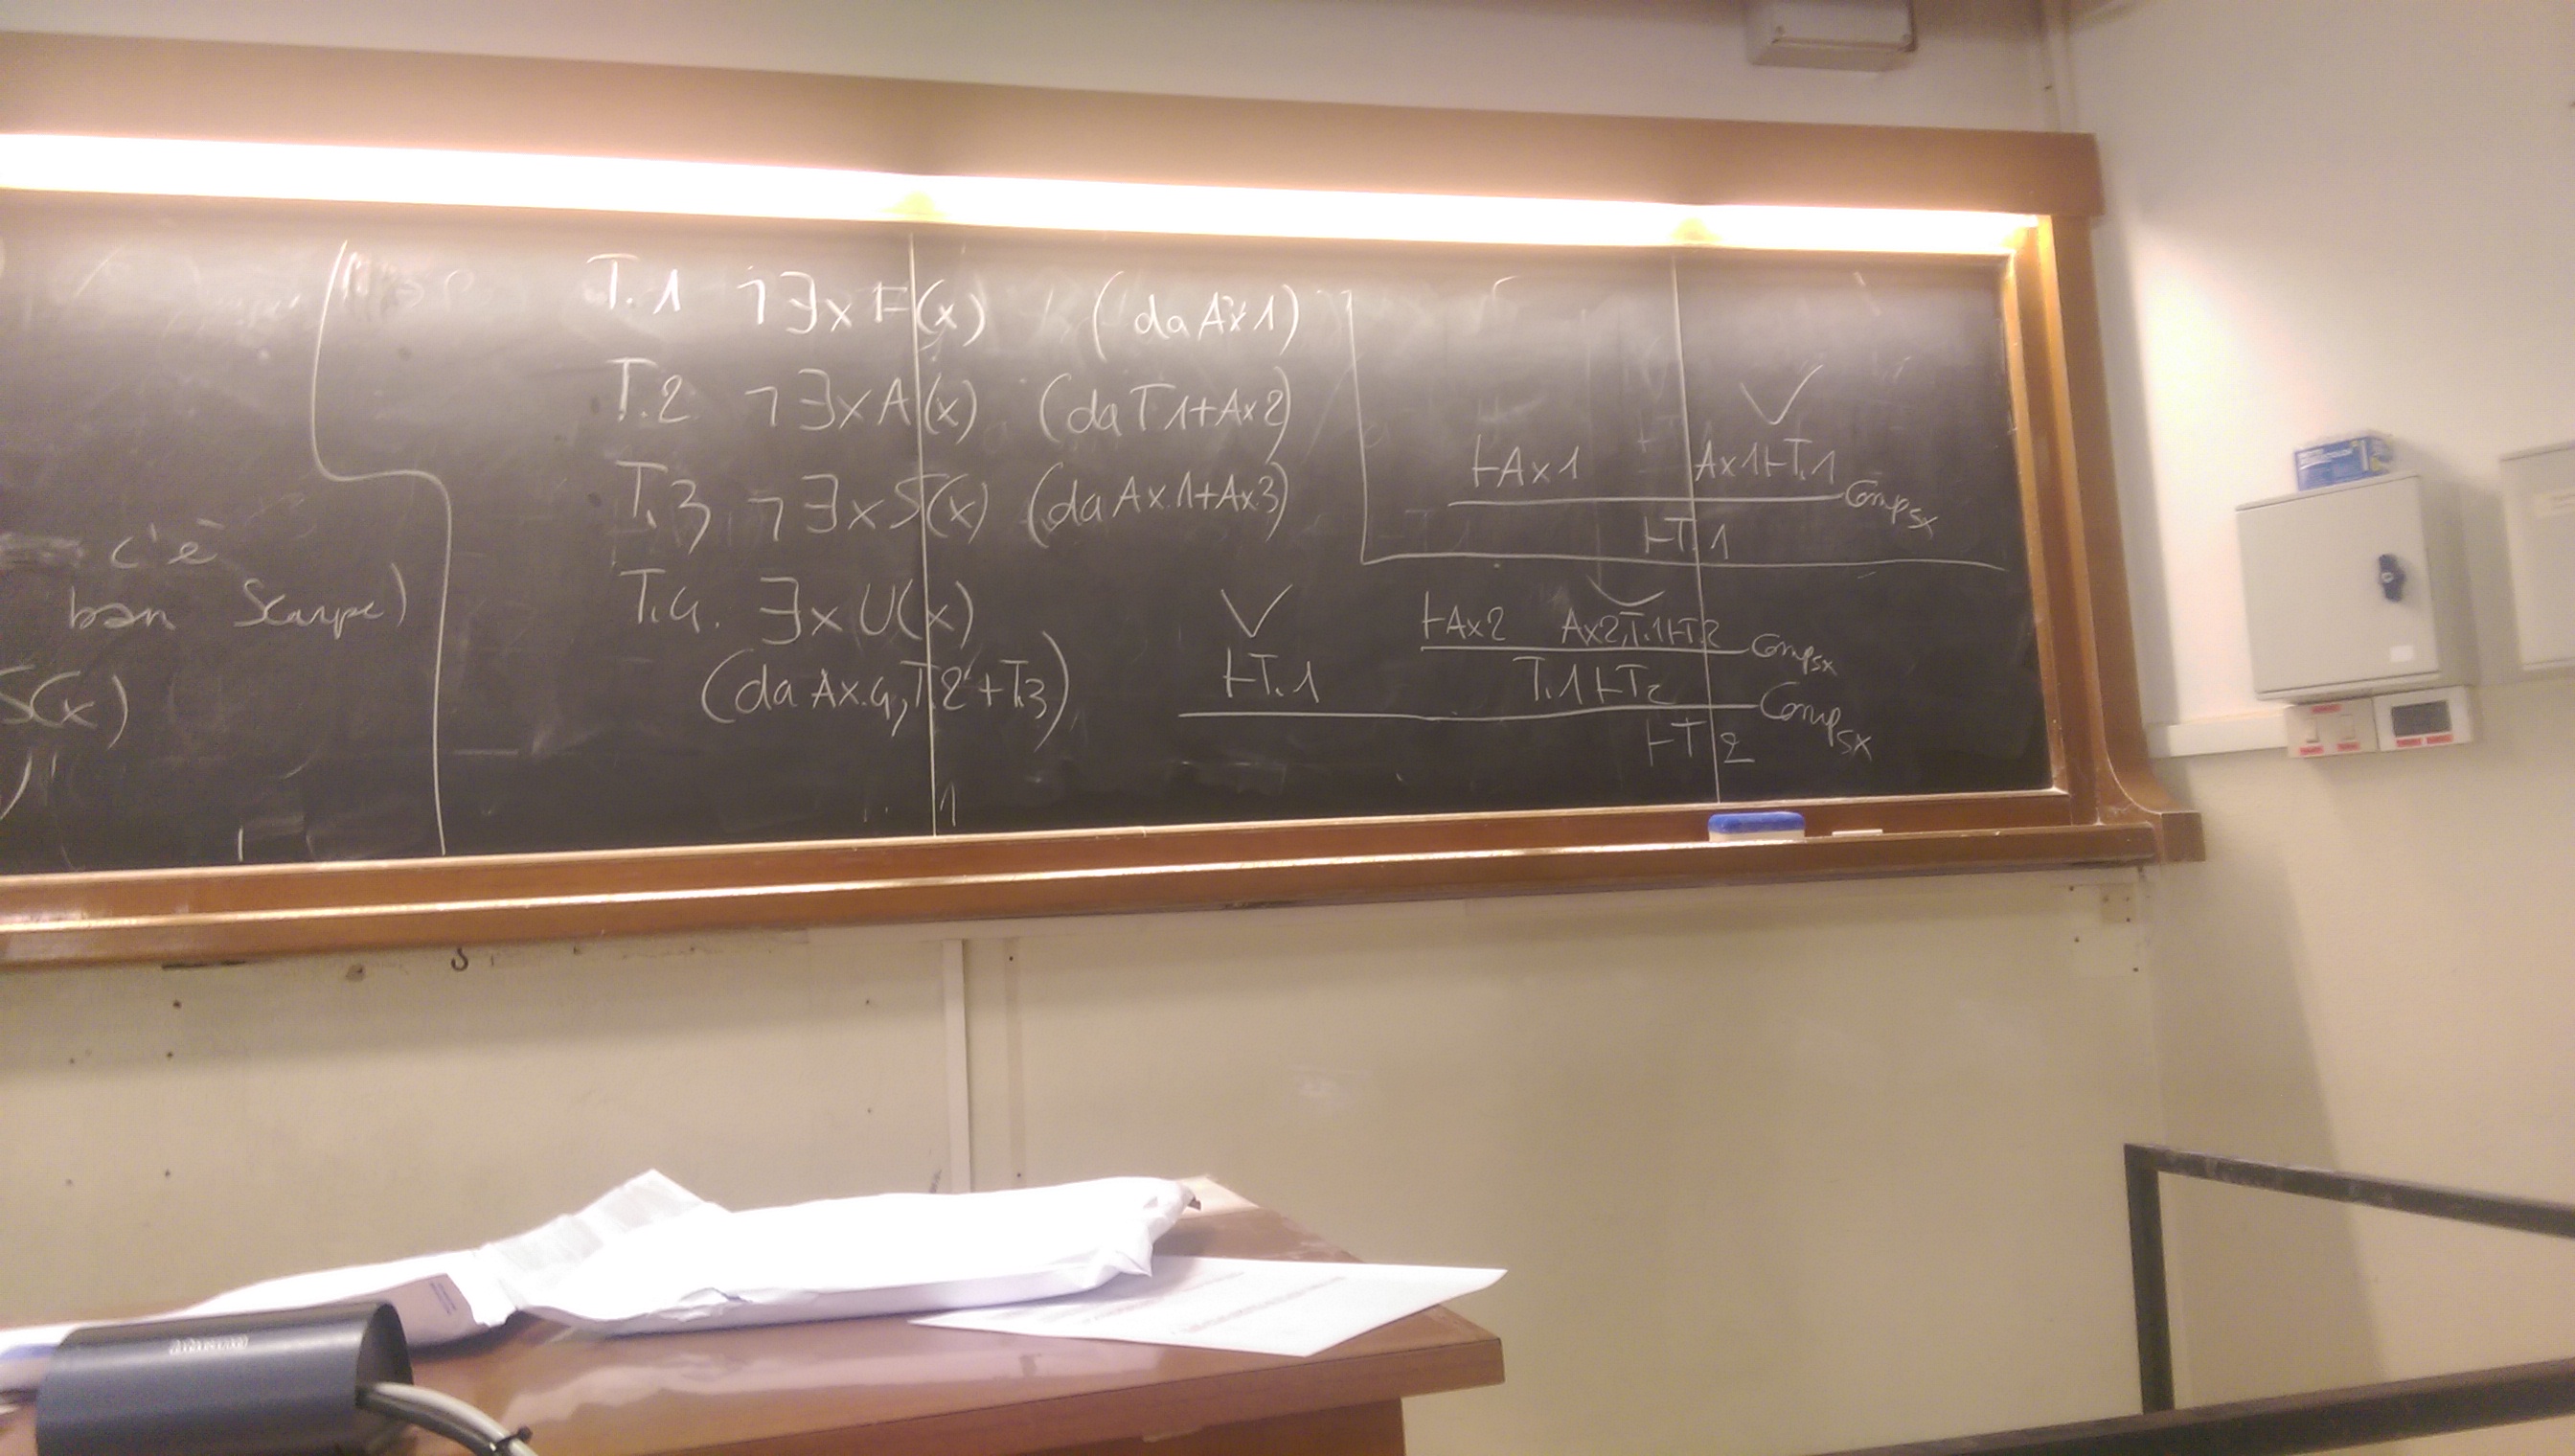 c'è
ban Scarpe)
S(x)
T.1 ¬∃x F(x) (da Ax 1)
T.2 ¬∃x A(x) (da T1+Ax2)
T.3 ¬∃x S(x) (da Ax.1+Ax.3)
T.4. ∃x U(x)
(da Ax.4, T.2+T.3)
⊢Ax1 Ax1⊢T.1 comp sx
⊢T.1
⊢Ax2 Ax2,T.1⊢T.2 comp sx
⊢T.1 T.1⊢T2 comp sx
⊢T2